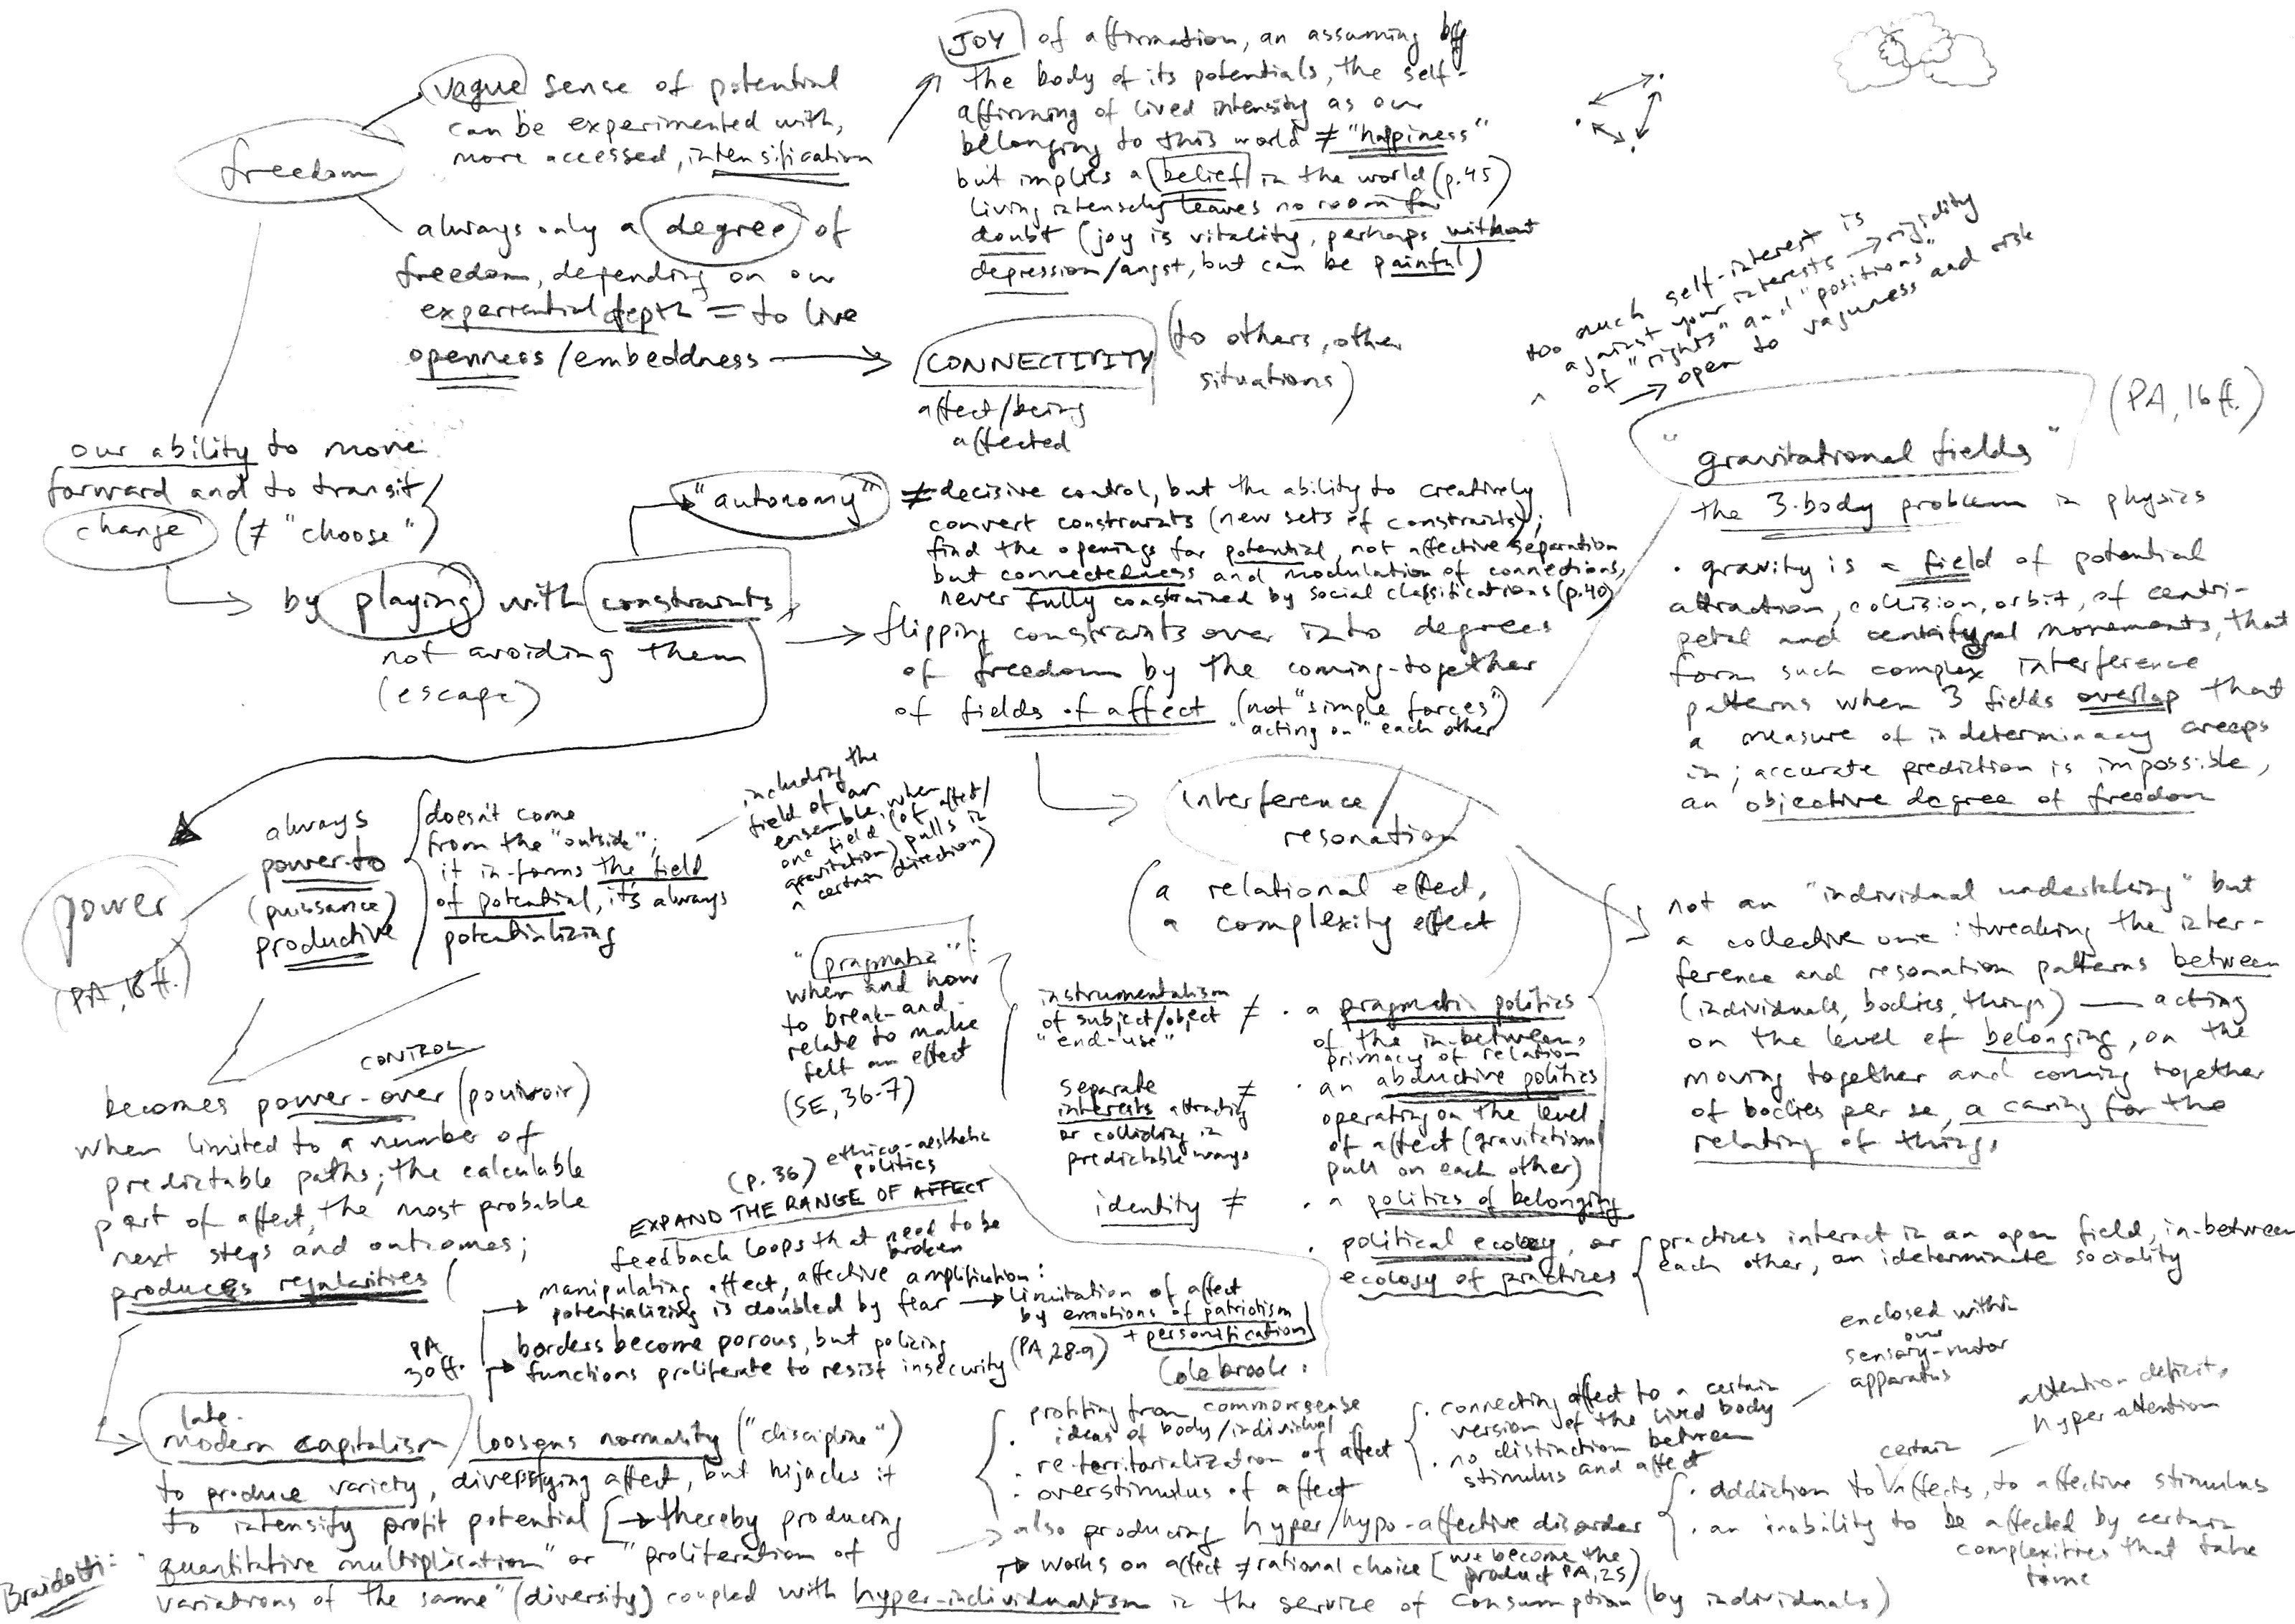 freedom
vague sense of potential
can be experimented with,
more accessed, intensification
always only a degree of
freedom, depending on our
experiential depth = to live
openness / embeddness
JOY of affirmation, an assuming by
the body of its potentials, the self-
affirming of lived intensity as our
belonging to this world ≠ "happiness"
but implies a belief in the world (p.45)
living intensely leaves no room for
doubt (joy is vitality, perhaps without
depression/angst, but can be painful)
CONNECTIVITY
(to others, other
situations)
affect/being
affected
our ability to move
forward and to transit/
change (≠ "choose")
by playing with constraints,
not avoiding them
(escape)
"autonomy" ≠ decisive control, but the ability to creatively
convert constraints (new sets of constraints);
find the openings for potential, not affective separation
but connectedness and modulation of connections,
never fully constrained by social classifications (p.40)
flipping constraints over into degrees
of freedom by the coming-together
of fields of affect (not "simple forces")
"acting on" each other
too much self-interest is
against your interests → rigidity
of "rights" and "positions"
→ open to vagueness and risk
(PA, 16ff.)
"gravitational fields"
the 3-body problem in physics
· gravity is a field of potential
attraction, collision, orbit, of centri-
petal and centrifugal movements, that
form such complex interference
patterns when 3 fields overlap that
a measure of indeterminacy creeps
in; accurate prediction is impossible,
an objective degree of freedom
interference/
resonation
(a relational effect,
a complexity effect)
not an "individual undertaking" but
a collective one: tweaking the inter-
ference and resonation patterns between
(individuals, bodies, things) — acting
on the level of belonging, on the
moving together and coming together
of bodies per se, a caring for the
relating of things
power
(PA, 18ff.)
always
power-to
(puissance)
productive
doesn't come
from the "outside";
it in-forms the field
of potential, it's always
potentializing
including the
field of an
ensemble, when
one field (of affect/
gravitation) pulls in
a certain direction)
"pragmatic":
when and how
to break-and-
relate to make
felt an effect
(SE, 36-7)
instrumentalism
of subject/object
"end-use"
≠ · a pragmatic politics
of the in-between,
primacy of relation
separate
interests attracting
or colliding in
predictable ways
≠ · an abductive politics
operating on the level
of affect (gravitational
pull on each other)
identity ≠ · a politics of belonging
· political ecology, or
ecology of practices
practices interact in an open field, in-between
each other, an ideterminate sociality
CONTROL
becomes power-over (pouvoir)
when limited to a number of
predictable paths; the calculable
part of affect, the most probable
next steps and outcomes;
produces regularities
(p. 36) ethico-aesthetic
politics
EXPAND THE RANGE OF AFFECT
feedback loops that need to be
broken
manipulating affect, affective amplification:
potentializing is doubled by fear → limitation of affect
by emotions of patriotism
+ personification
(PA, 28-9)
borders become porous, but policing
functions proliferate to resist insecurity
PA
30ff.
late-
modern capitalism loosens normality ("discipline")
to produce variety, diversifying affect, but hijacks it
to intensify profit potential [→ thereby producing
Braidotti: "quantitative multiplication" or "proliferation of
variations of the same" (diversity) coupled with hyper-individualism in the service of consumption (by individuals)
Colebrook:
· profiting from commonsense
ideas of body/individual
· re-territorialization of affect
· overstimulus of affect
· connecting affect to a certain
version of the lived body
· no distinction between
stimulus and affect
enclosed within
our
sensory-motor
apparatus
also producing hyper/hypo-affective disorder
→ works on affect ≠ rational choice [we become the
product PA, 25)
attention deficit,
hyper-attention
certain
· addiction to affects, to affective stimulus
· an inability to be affected by certain
complexities that take
time